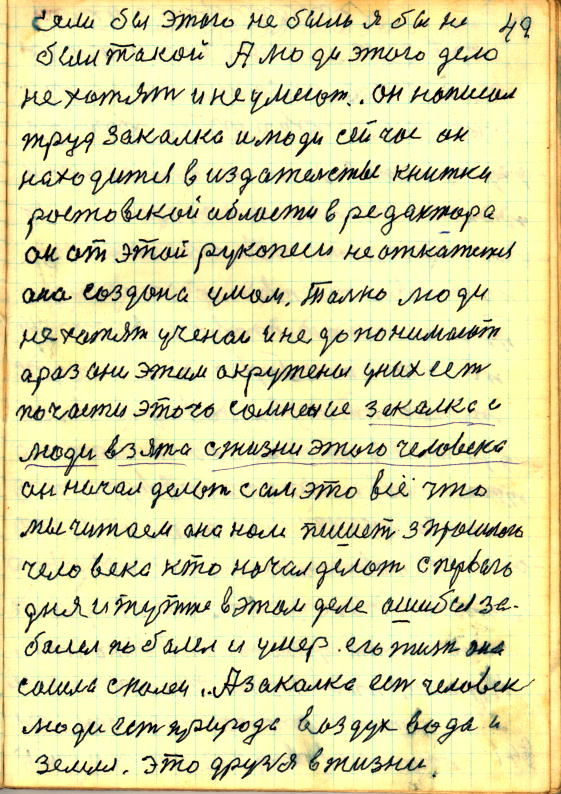 если бы этого не было я бы не 49
был такой А люди этого дело
не хотят и не умеют.. он написал
труд Закалка и люди сейчас он
находится в издательстве книжки
ростовской области в редактора
он от этой рукописи не откажется
она создона умом. Толко люди
не хотят ученои и не допонимают
араз они этим окружены уних ест
почасти этого сомнение закалка и
люди взята сжизни этого человека
он начал делат сам это всё что
мы читаем она нам пишет з прошлого
человека кто начал делат спервого
дня и тутже вэтом деле ошибся за-
болел по болел и умер. его жизн она
сошла сполеи.. А закалка ест человек
люди ест природа воздух вода и
земля. это друзя вжизни.